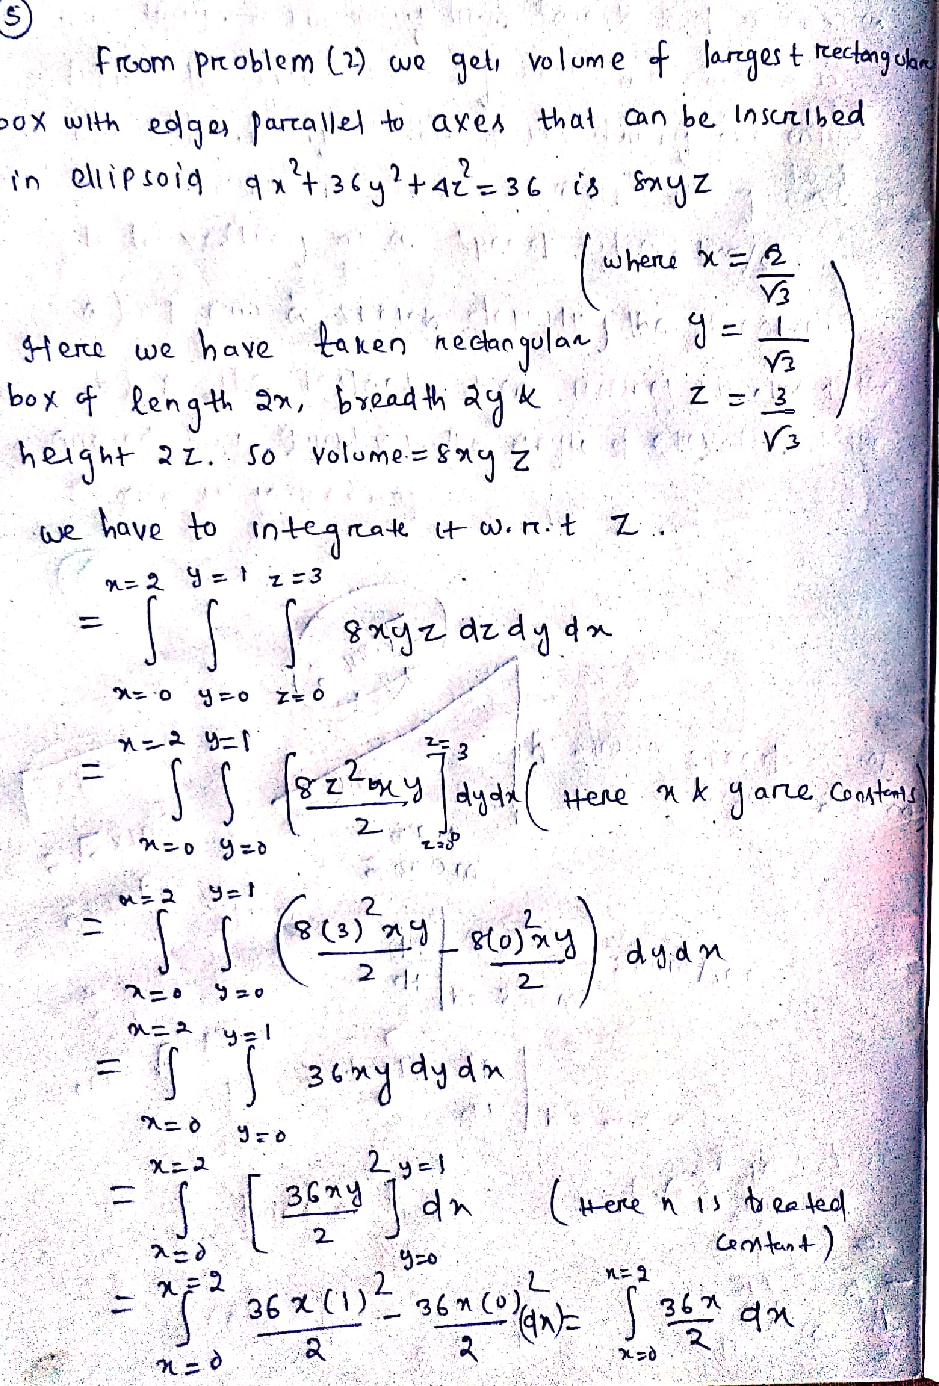 5
From problem (2) we get, volume of largest rectangular
box with edges parallel to axes that can be inscribed
in ellipsoid 9x²+36y²+4z²=36 is 8xyz
(where x = 2/√3
y = 1/√3
z = 3/√3)
Here we have taken rectangular
box of length 2x, breadth 2y &
height 2z. so volume = 8xyz
we have to integrate it w.r.t z.
= ∫_{x=0}^{x=2} ∫_{y=0}^{y=1} ∫_{z=0}^{z=3} 8xyz dz dy dx
= ∫_{x=0}^{x=2} ∫_{y=0}^{y=1} [8z²xy/2]_{z=0}^{z=3} dy dx (Here x & y are constants)
= ∫_{x=0}^{x=2} ∫_{y=0}^{y=1} (8(3)²xy/2 - 8(0)²xy/2) dy dx
= ∫_{x=0}^{x=2} ∫_{y=0}^{y=1} 36xy dy dx
= ∫_{x=0}^{x=2} [36xy²/2]_{y=0}^{y=1} dx (Here x is treated constant)
= ∫_{x=0}^{x=2} 36x(1)²/2 - 36x(0)²/2 (dx) = ∫_{x=0}^{x=2} 36x/2 dx